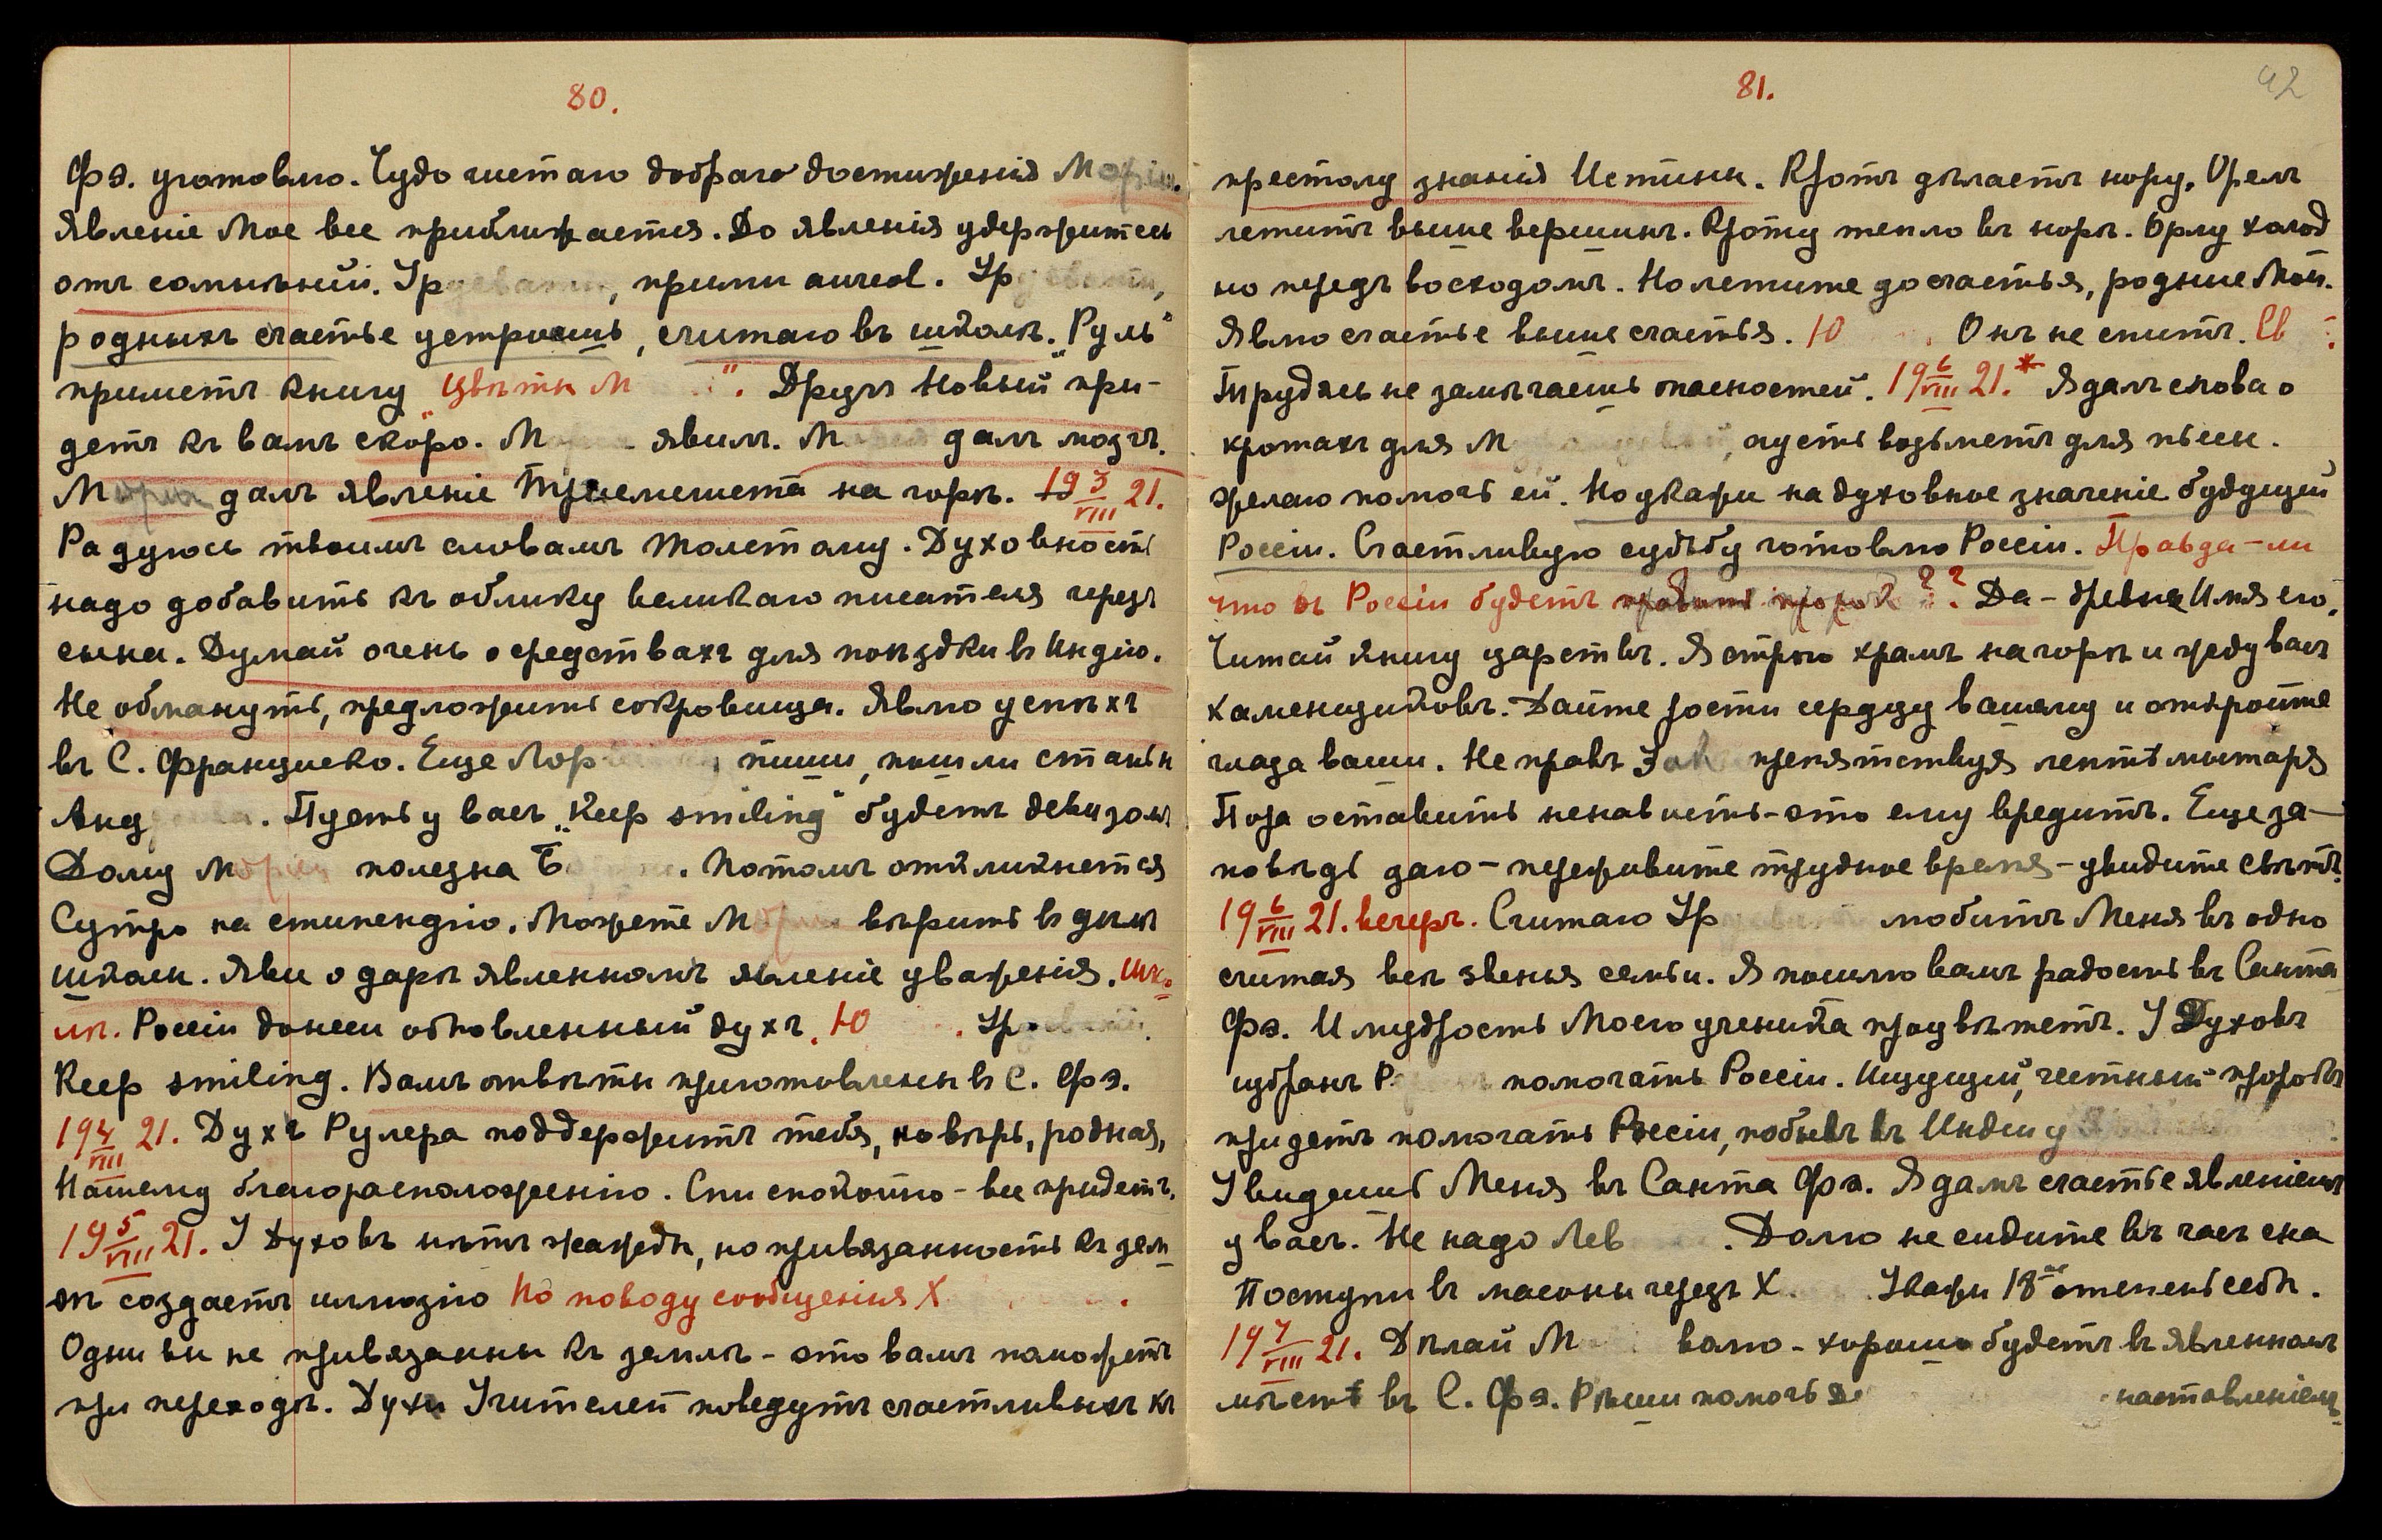 80.
Фэ. уготовлю. Чудо чистаго добраго достиженія Моріи.
Явленіе Мое все приближается. До явленія удержитесь
отъ сомнѣній. Ур, прими aureol. Ур,
родныхъ счастье устроишь, считаю въ школѣ. „Руль"
приметъ книгу „Цвѣты М ". Другъ Новый при-
детъ къ вамъ скоро. М явилъ. М далъ мозгъ.
Морія далъ явленіе Трисмегиста на горѣ. 19 3/VIII 21.
Радуюсь твоимъ словамъ Толстому. Духовность
надо добавить къ облику великаго писателя черезъ
сына. Думай очень о средствахъ для поѣздки въ Индію.
Не обмануть, предложить сокровища. Явлю успѣхъ
въ С. Франциско. Еще Лор пиши, пошли статьи
Анд. Пусть у васъ „Keep smiling" будетъ девизомъ
Дому Моріи полезна Б. Потомъ откликнется
Сутро на стипендію. Можете М вѣрить въ дѣлѣ
школы. Яви о дарѣ явленномъ явленіе уваженія. Шко-
лѣ. Россіи донеси обновленный духъ. Ю . Ур.
Keep smiling. Вамъ отвѣты приготовлены въ С. Фэ.
19 4/VIII 21. Духъ Рулера поддержитъ тебя, повѣрь, родная,
Нашему благорасположенію. Спи спокойно – все придетъ.
19 5/VIII 21. У Духовъ нѣтъ жажды, но привязанность къ зем-
лѣ создаетъ иллюзію По поводу сообщенія Х .
Одни вы не привязанны къ землѣ – это вамъ поможетъ
при переходѣ. Духи Учителей поведутъ счастливыхъ къ
81.
42
престолу знанія Истины. Кротъ дѣлаетъ нору, Орелъ
летитъ выше вершинъ. Кроту тепло въ норѣ. Орлу холод
но передъ восходомъ. Но летите до счастья, родные Мои.
Явлю счастье выше счастья. Ю . Онъ не спитъ. Св :
Трудясь не замѣчаешь опасностей. 19 6/VIII 21.* Я далъ слова о
кротахъ для М, пусть возьметъ для пьесы.
Желаю помочь ей. Но укажи на духовное значеніе будущей
Россіи. Счастливую судьбу готовлю Россіи. Правда-ли
что въ Россіи будетъ править пророкъ?? Да – древне Имя его.
Читай книгу царствъ. Я строю храмъ на горѣ и жду васъ
каменщиковъ. Дайте рости сердцу вашему и откройте
глаза ваши. Не правъ Зав препятствуя лептѣ мытаря
Пора оставить ненависть – это ему вредитъ. Еще за-
повѣдь даю – переживите трудное время – увидите свѣтъ.
19 6/VIII 21. вечеръ. Считаю Ур любитъ Меня въ одно
считая всѣ звенья семьи. Я пошлю вамъ радость въ Санта
Фэ. И мудрость Моего ученика процвѣтетъ. У Духовъ
избранъ Р помогать Россіи. Ищущій, честный пророкъ
придетъ помогать Россіи, побывъ въ Индіи у
Увидишь Меня въ Санта Фэ. Я дамъ счастье явленіемъ
у васъ. Не надо Лев . Долго не сидите въ часъ сна
Поступи въ масоны черезъ Х. Укажи 18ую степень себѣ.
19 7/VIII 21. Дѣлай М валю – хорошо будетъ въ явленномъ
мѣстѣ въ С. Фэ. Рѣши помочь наставленіемъ